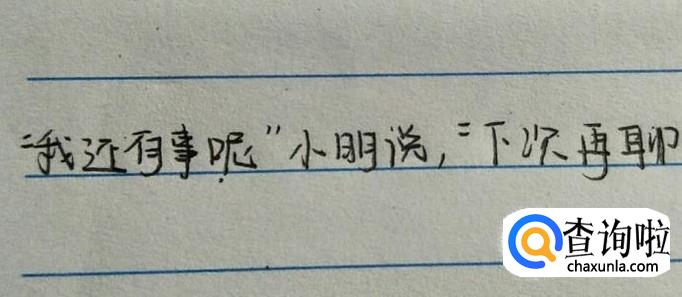 “我还有事呢”小明说，“下次再聊
查询啦
chaxunla.com